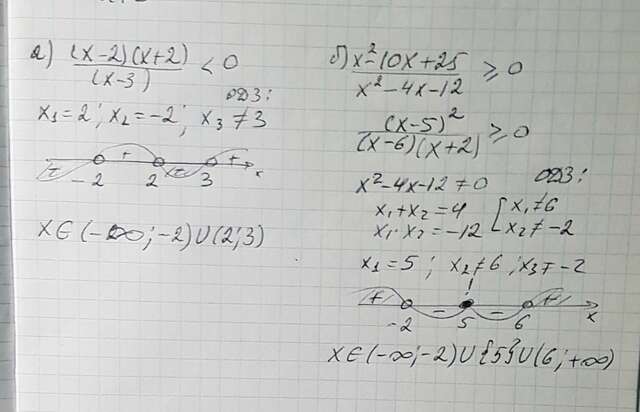 а) (x-2)(x+2)/(x-3) < 0
ОДЗ:
x₁=2; x₂=-2; x₃≠3
- + - +
-2 2 3 x
x∈(-∞;-2)∪(2;3)
б) x²-10x+25/x²-4x-12 ≥ 0
(x-5)²/(x-6)(x+2) ≥ 0
x²-4x-12≠0 ОДЗ:
x₁+x₂=4 [x₁≠6
x₁·x₂=-12 [x₂≠-2
x₁=5; x₂≠6; x₃≠-2
+ - ! - +
-2 5 6 x
x∈(-∞;-2)∪{5}∪(6;+∞)